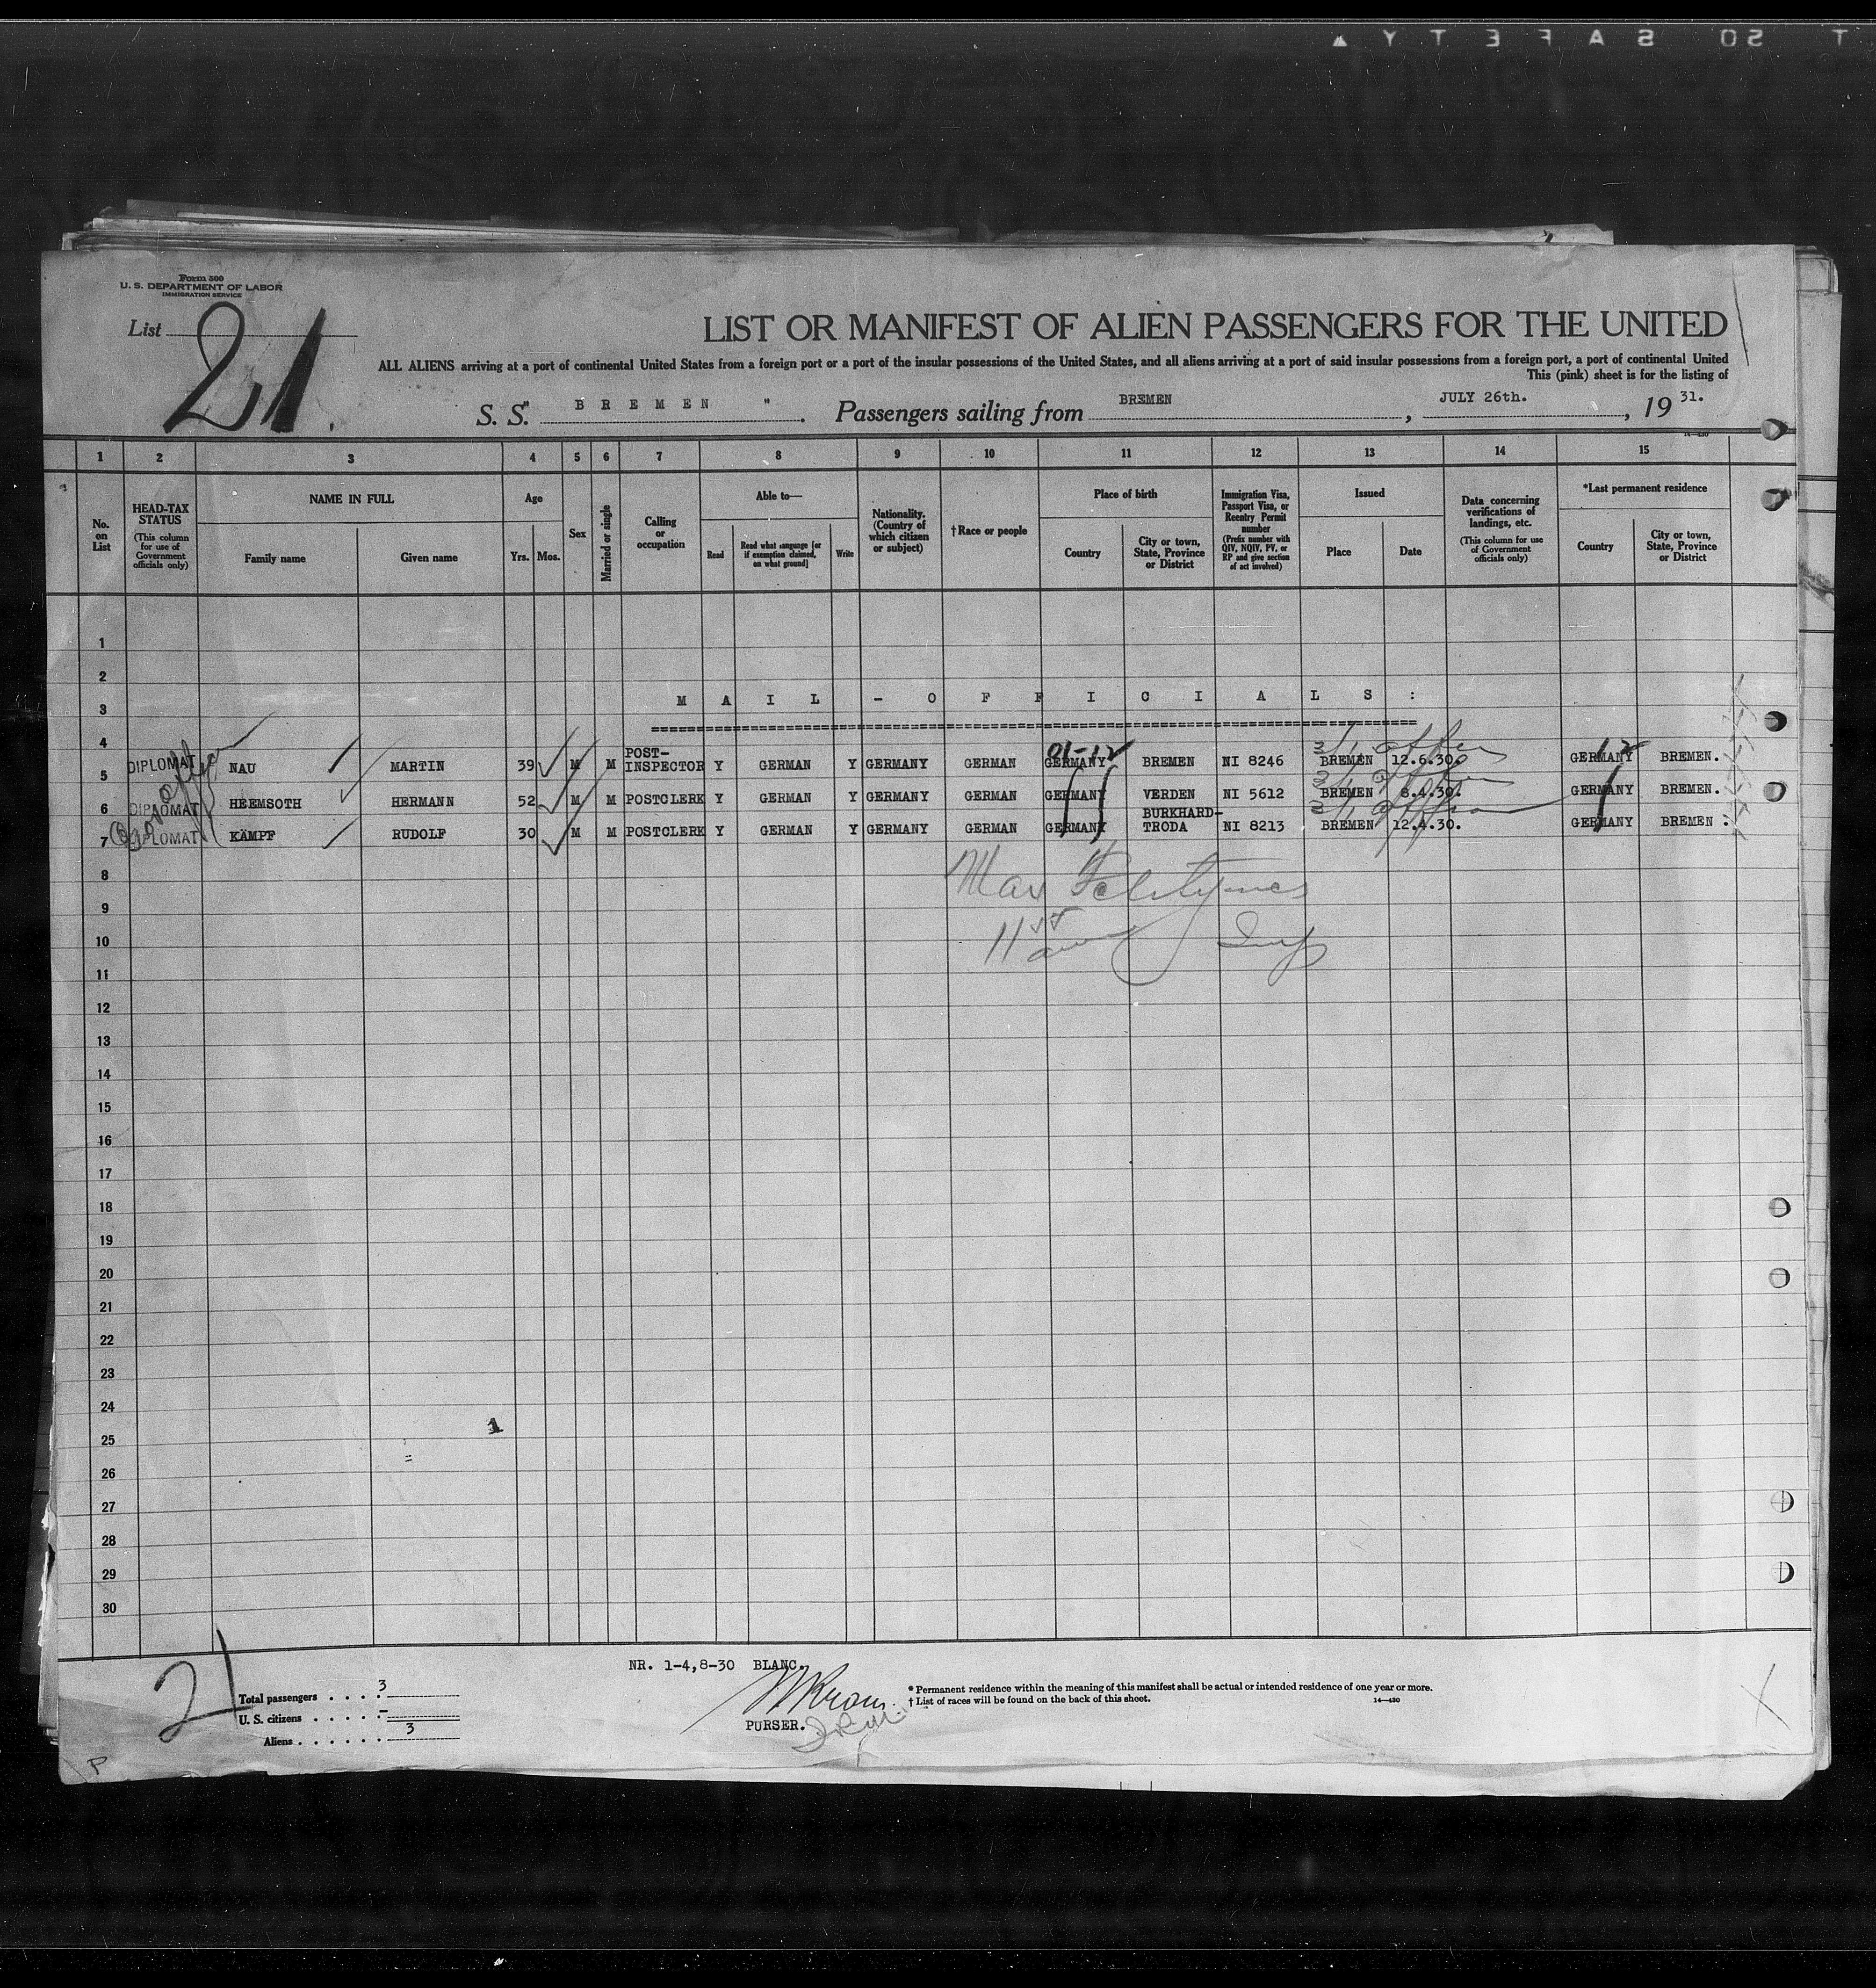 T 50 SAFETY ▲
Form 500
U. S. DEPARTMENT OF LABOR
IMMIGRATION SERVICE
List 21
LIST OR MANIFEST OF ALIEN PASSENGERS FOR THE UNITED
ALL ALIENS arriving at a port of continental United States from a foreign port or a port of the insular possessions of the United States, and all aliens arriving at a port of said insular possessions from a foreign port, a port of continental United
This (pink) sheet is for the listing of
S. S. "BREMEN". Passengers sailing from BREMEN, JULY 26th., 19 31.
14-430
1 2 3 4 5 6 7 8 9 10 11 12 13 14 15
No. on List
HEAD-TAX STATUS (This column for use of Government officials only)
NAME IN FULL
Family name
Given name
Age
Yrs. Mos.
Sex
Married or single
Calling or occupation
Able to—
Read
Read what language [or if exemption claimed, on what ground]
Write
Nationality. (Country of which citizen or subject)
†Race or people
Place of birth
Country
City or town, State, Province or District
Immigration Visa, Passport Visa, or Reentry Permit number (Prefix number with QIV, NQIV, PV, or RP and give section of act involved)
Issued
Place
Date
Data concerning verifications of landings, etc. (This column for use of Government officials only)
*Last permanent residence
Country
City or town, State, Province or District
1
2
3 MAIL-OFFICIALS:
4
01-12
5 DIPLOMAT NAU MARTIN 39 M M POST-INSPECTOR Y GERMAN Y GERMANY GERMAN GERMANY BREMEN NI 8246 BREMEN 12.6.30. GERMANY BREMEN.
6 DIPLOMAT HEEMSOTH HERMANN 52 M M POSTCLERK Y GERMAN Y GERMANY GERMAN GERMANY VERDEN NI 5612 BREMEN 8.4.30. GERMANY BREMEN.
7 DIPLOMAT KÄMPF RUDOLF 30 M M POSTCLERK Y GERMAN Y GERMANY GERMAN GERMANY BURKHARD-TRODA NI 8213 BREMEN 12.4.30. GERMANY BREMEN.
8
Max
9
10
Insp
11
12
13
14
15
16
17
18
19
20
21
22
23
24
25
26
27
28
29
30
NR. 1-4,8-30 BLANC.
21
Total passengers . . . . 3
U. S. citizens . . . . . -
Aliens . . . . . . 3
PURSER.
* Permanent residence within the meaning of this manifest shall be actual or intended residence of one year or more.
† List of races will be found on the back of this sheet.
14-430
P
X